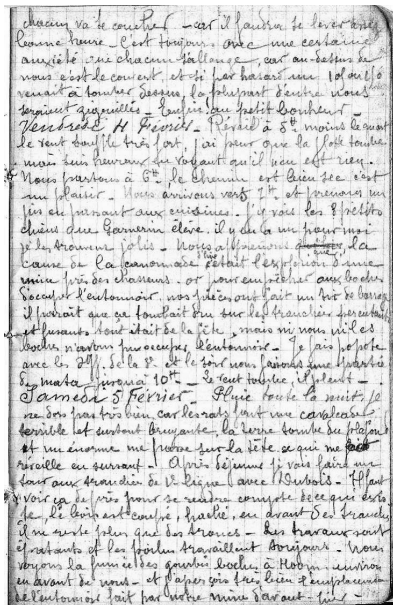 chacun va se coucher - car il faudra se lever assez
bonne heure. C'est toujours avec une certaine
anxiété que chacun s'allonge, car au-dessus de
nous c'est le couvert, et si par hasard un
venait à tomber dessus, la plupart d'entre nous
seraient zigouillés. Enfin au petit bonheur -
Vendredi 4 Février - Réveil à 5h moins le quart
le vent souffle très fort, j'ai peur que la flotte tombe
mais suis heureux en voyant qu'il n'en est rien.
Nous partons à 6h, le chemin est bien sec c'est
un plaisir - Nous arrivons vers 7h et prenons un
jus en passant aux cuisines. J'y vois les 8 petits
chiens que Garnerin élève. il y en a un pour moi
je les trouve jolis - Nous apprenons la
cause de la canonnade c'était l'explosion d'une
mine près des chasseurs. or pour empêcher aux boches
d'occuper l'entonnoir nos pièces ont fait un tir de barrage
il paraît que ça tombait dru sur les tranchées percutants
et fusants tout était de la fête, mais ni nous ni les
boches n'avons pu occuper l'entonnoir - Je fais popote
avec les de la 8e et le soir nous faisons une partie
de mata jusqu'à 10h - Le vent tombe, il pleut -
Samedi 5 Février - Pluie toute la nuit. je
ne dors pas très bien, car les rats font une cavalcade
terrible et surtout bruyante, la terre tombe du plafond
et un énorme me passe sur la tête ce qui me
réveille en sursaut - Après déjeuner je vais faire un
tour aux tranchées de 1e ligne avec Dubois - Il faut
voir ça de près pour se rendre compte de ce qui est
le bois est coupé, haché, en avant des tranchées
il ne reste plus que des troncs - Les travaux sont
épatants et les poilus travaillent toujours - Nous
voyons la fumée des gourbis boches à environ
en avant de nous - et j'aperçois très bien l'emplacement
de l'entonnoir fait par notre mine d'avant-hier -